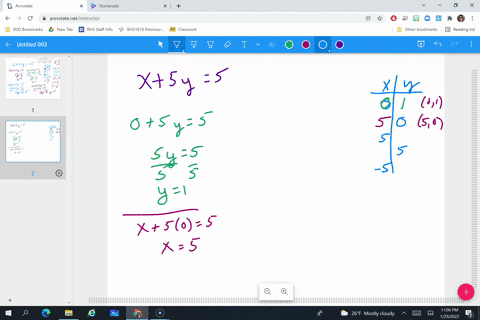 Annotate
Numerade
annotate.net/instructor
Apps
RSD Bookmarks
New Tab
RHS Staff Info
Classwork
Other bookmarks
Reading list
Untitled 003
x+5y=5
0+5y=5
5y=5
5 5
y=1
x+5(0)=5
x=5
x y
0 1 (0,1)
5 0 (5,0)
5
5
-5
1
2
26°F Mostly cloudy
11:06 PM
1/29/2022